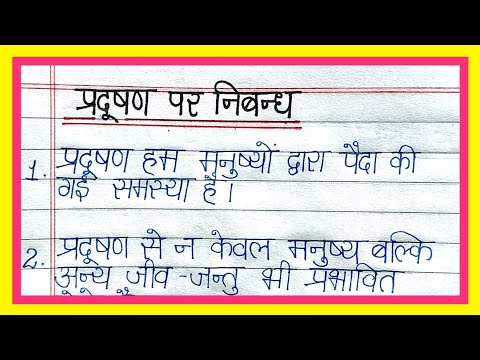 प्रदूषण पर निबन्ध
1. प्रदूषण हम मनुष्यों द्वारा पैदा की
गई समस्या है।
2. प्रदूषण से न केवल मनुष्य बल्कि
अन्य जीव-जन्तु भी प्रभावित